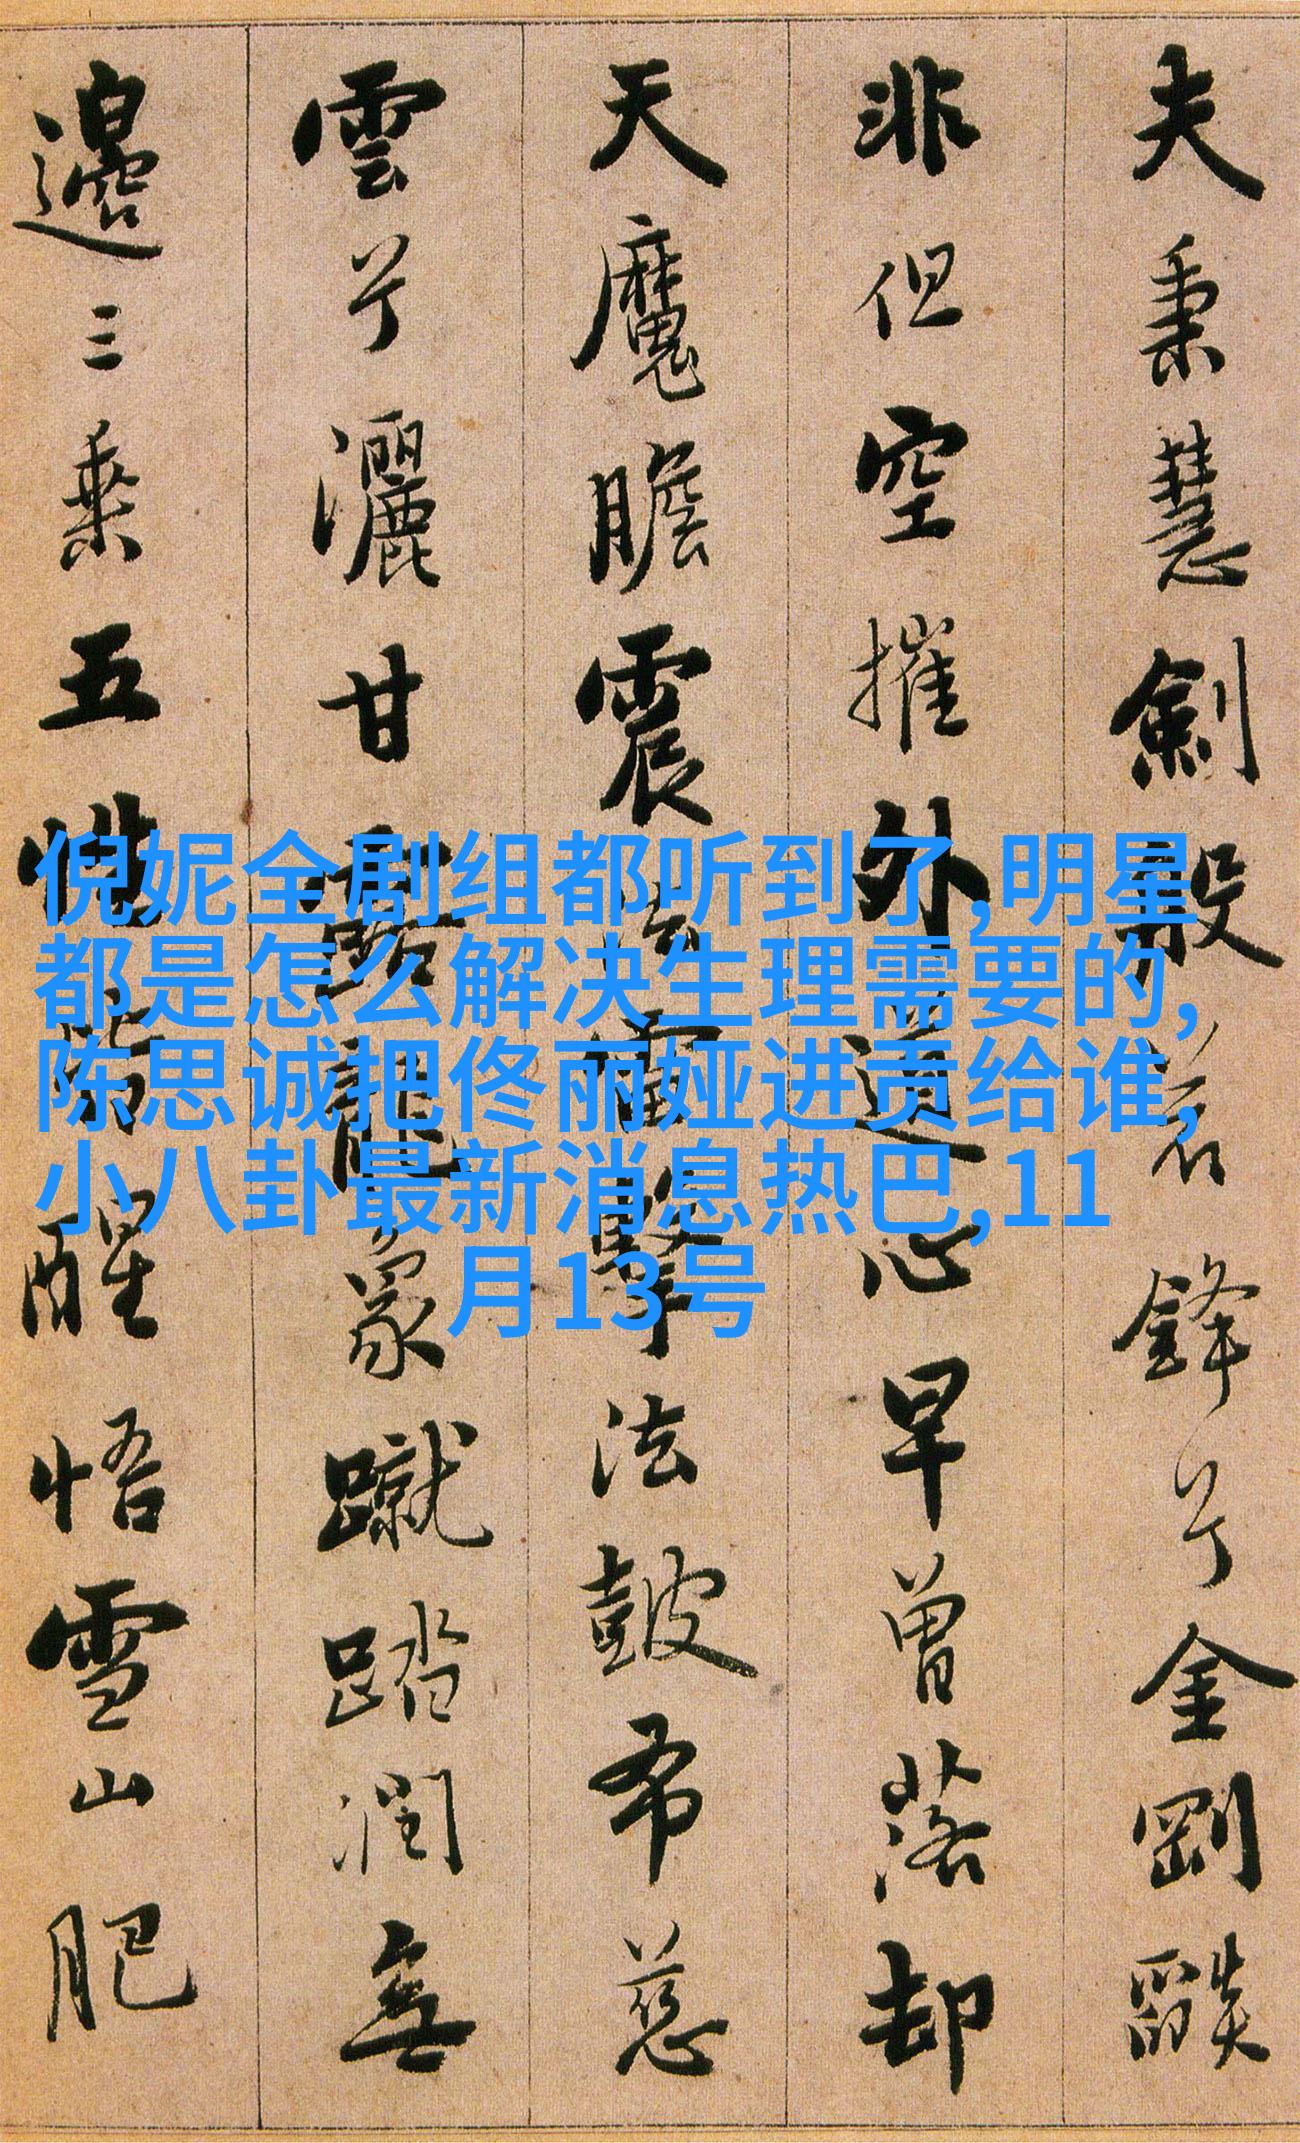 夫秉慧劍般若鋒兮金剛燄
非但空摧外道心早曾落却
天魔膽震法雷擊法皷布慈
雲兮灑甘露龍象蹴踏潤無
邊三乘五性皆醒悟雪山肥
倪妮全剧组都听到了,明星
都是怎么解决生理需要的,
陈思诚把佟丽娅进贡给谁,
小八卦最新消息热巴,11
月13号